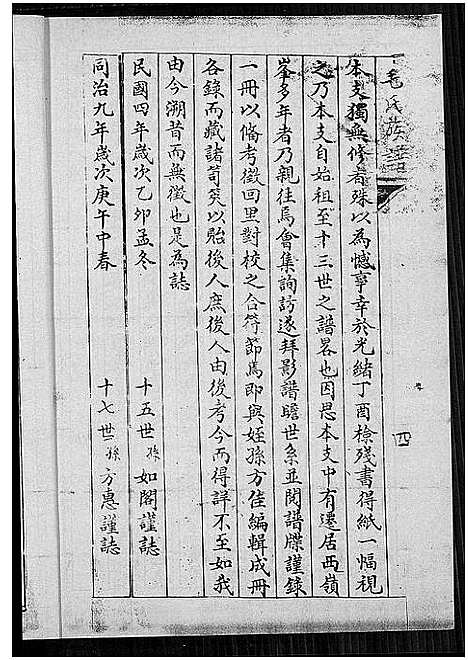 毛氏族譜
四
本支獨無修者殊以為憾事幸於光緒丁酉檢殘書得紙一幅視
之乃本支自始祖至十三世之譜畧也因思本支中有遷居西嶺
峯多年者乃親往焉會集詢訪遂拜影譜瞻世系並閱譜牒謹錄
一冊以俻考徵回里對校之合符節焉即與姪孫方佳編輯成冊
各錄而藏諸笥篋以貽後人庶後人由後考今而得詳不至如我
由今溯昔而無徵也是為誌
民國四年歲次乙卯孟冬 十五世孫如閣謹誌
同治九年歲次庚午中春 十七世孫方惠謹誌